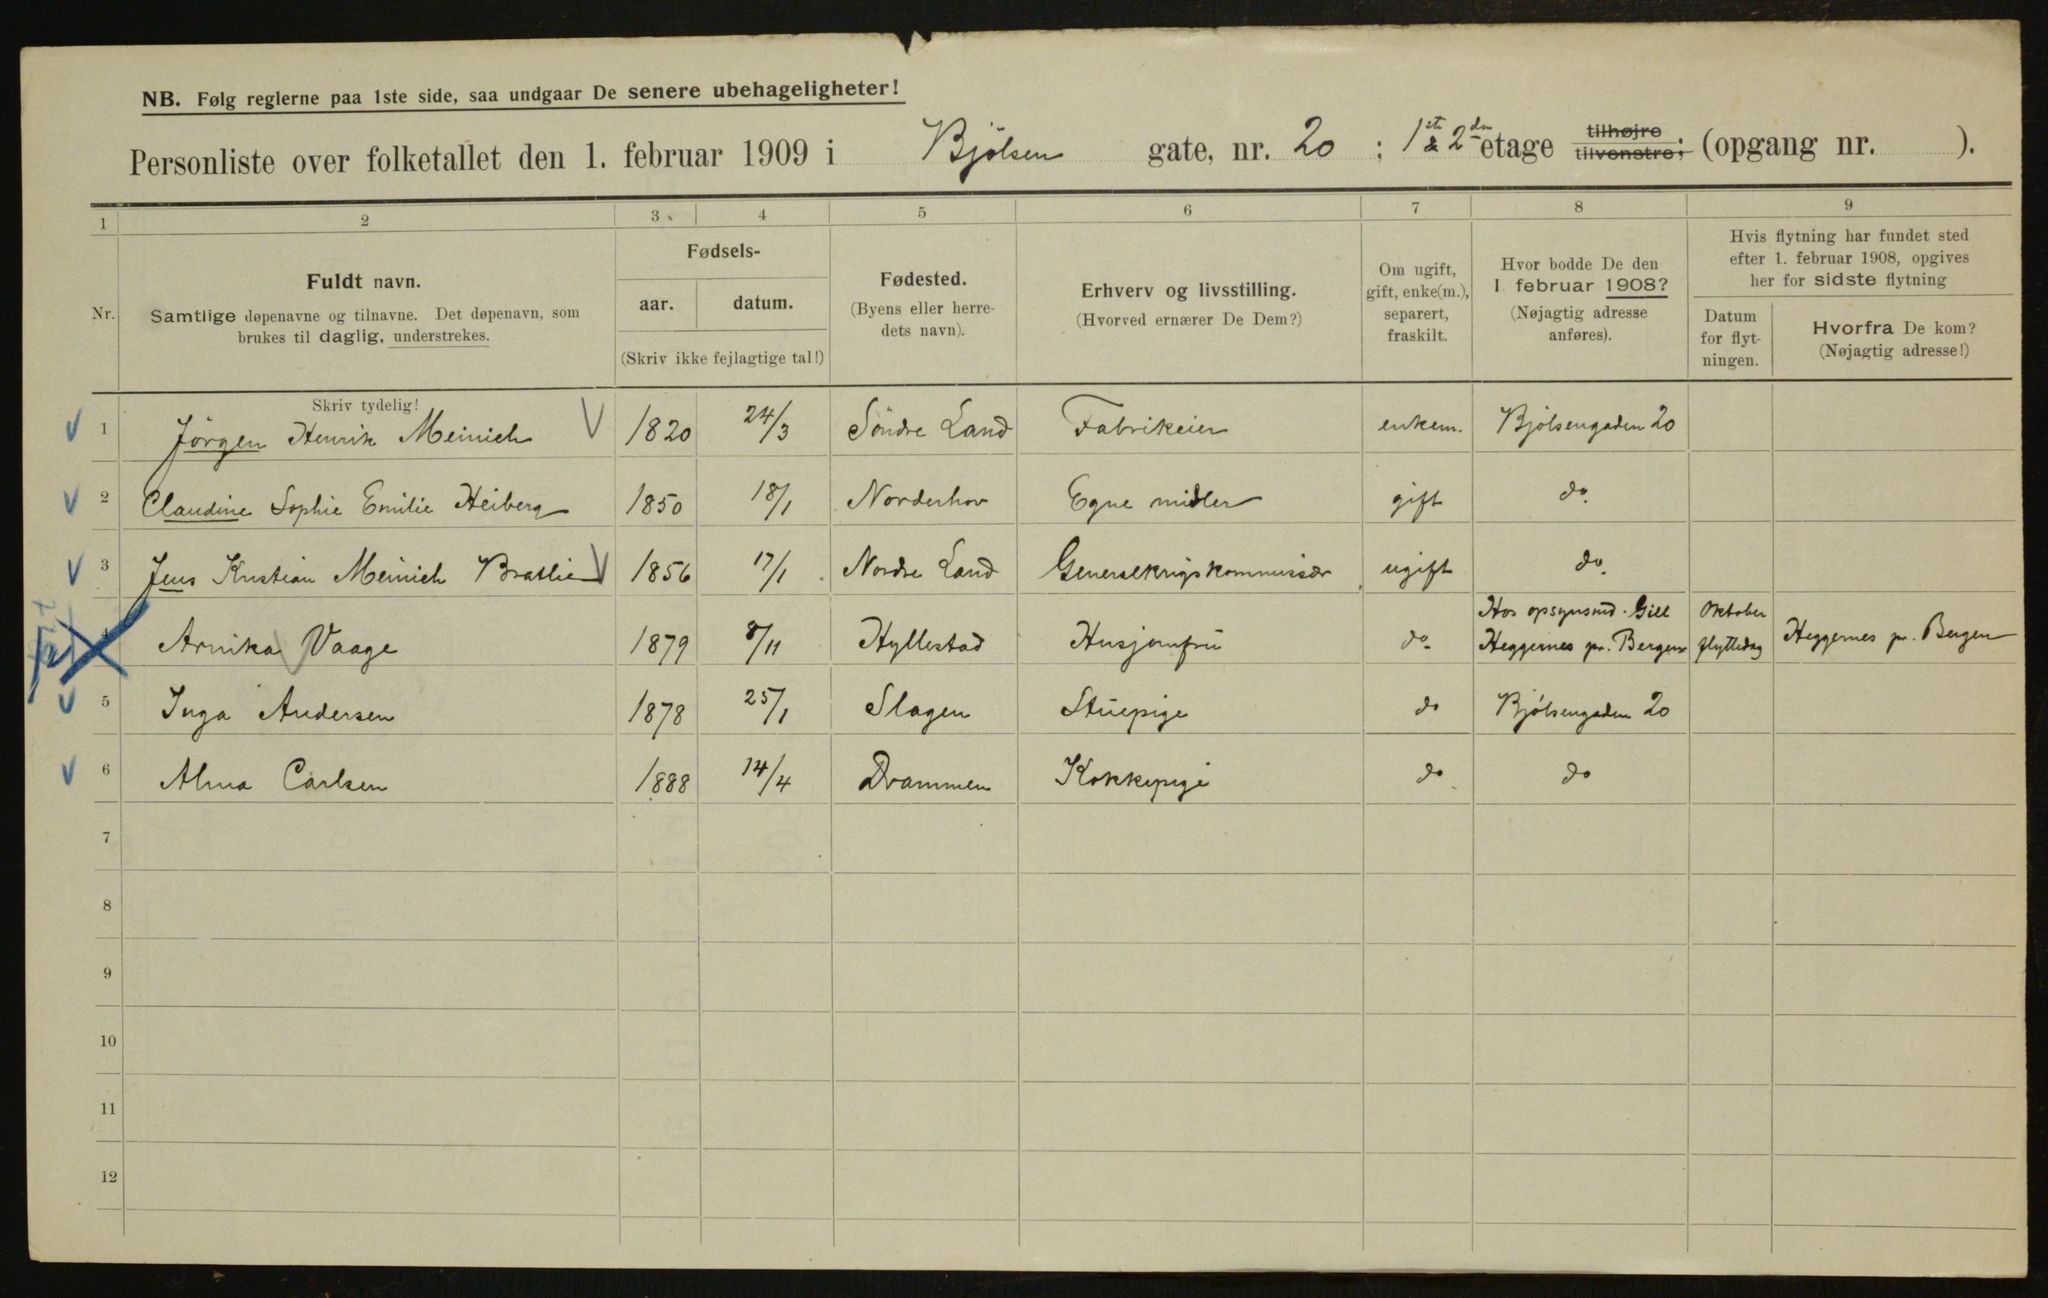 NB. Følg reglerne paa 1ste side, saa undgaar De senere ubehageligheter!
Personliste over folketallet den 1. februar 1909 i Bjölsen gate, nr. 20 ; 1ste & 2den etage tilhøjre tilvenstre; (opgang nr. ).
1 2 3 4 5 6 7 8 9
Nr.
Fuldt navn.
Samtlige døpenavne og tilnavne. Det døpenavn, som
brukes til daglig, understrekes.
Fødsels-
aar. datum.
(Skriv ikke fejlagtige tal!)
Fødested.
(Byens eller herre-
dets navn).
Erhverv og livsstilling.
(Hvorved ernærer De Dem?)
Om ugift,
gift, enke(m.),
separert,
fraskilt.
Hvor bodde De den
1 februar 1908?
(Nøjagtig adresse
anføres).
Hvis flytning har fundet sted
efter 1. februar 1908, opgives
her for sidste flytning
Datum
for flyt-
ningen.
Hvorfra De kom?
(Nøjagtig adresse!)
Skriv tydelig!
1 Jörgen Henrik Meinich 1820 24/3 Söndre Land Fabrikeier enkem. Bjölsengaden 20
2 Claudine Sophie Emilie Heiberg 1850 18/1 Norderhov Egne midler gift do.
3 Jens Kristian Meinich Bratlie 1856 17/1 Nordre Land Generalkrigskommissær ugift do.
4 Arnika Vaage 1879 8/11 Hyllestad Husjomfru do. Hos opsynsmd. Gill Heggernes pr. Bergen Oktober flyttedag Heggernes pr. Bergen
5 Inga Andersen 1878 25/1 Slagen Stuepige do Bjölsengaden 20
6 Alma Carlsen 1888 14/4 Drammen Kokkepige do do
7
8
9
10
11
12